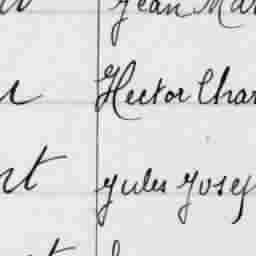 Jean Mar
Hector Char
nt Jules Josep